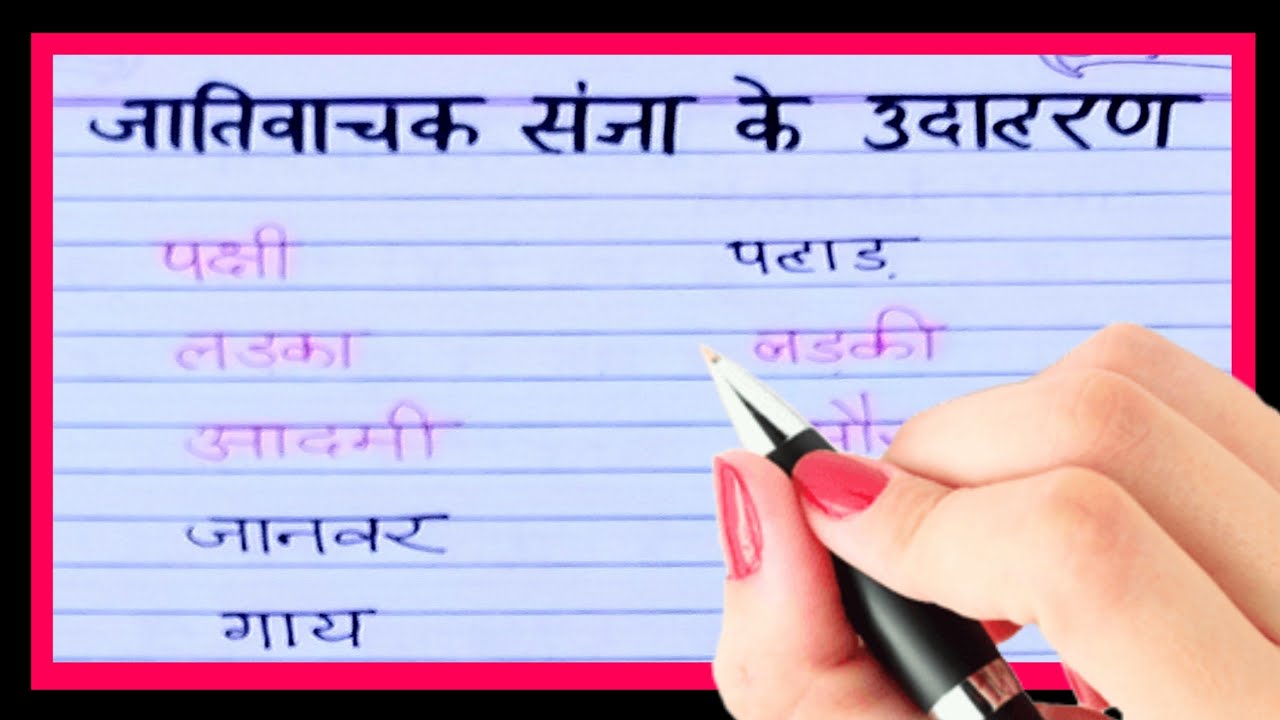 जातिवाचक संजा के उदाहरण
पक्षी पहाड़
लडका लडकी
आदमी
जानवर
गाय